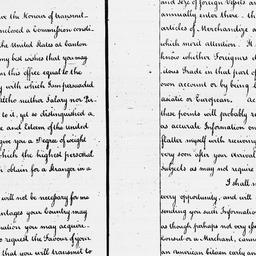 ve the Honour of transmit-
enclosed a Commission consti-
the United States at Canton
my best wishes that you may
in this office equal to the
y with which I am persuaded
Altho neither Salary nor Per-
to it, yet so distinguished a
ce and Esteem of the United
give you a Degree of weight
which the highest personal
ch obtain for a Stranger in a
will not be necessary for me
antages your Country may
mation you may acquire-
to request the Favour of your
that you will transmit to
and Size of foreign Vessels an
annually enter there. th
articles of Merchandize a
which merit attention. It
know whether Foreigners d
ious Trade in that part of
own account or by being b
asiatic or European. ac
these points will probably re
as accurate Information on
flatter myself with receiving
very soon after your arrival
Subjects as may not require
I shall n
every opportunity, and will
sending you such Information
as though perhaps not very ste
Consul or a Merchant, cann
an american citizen early and